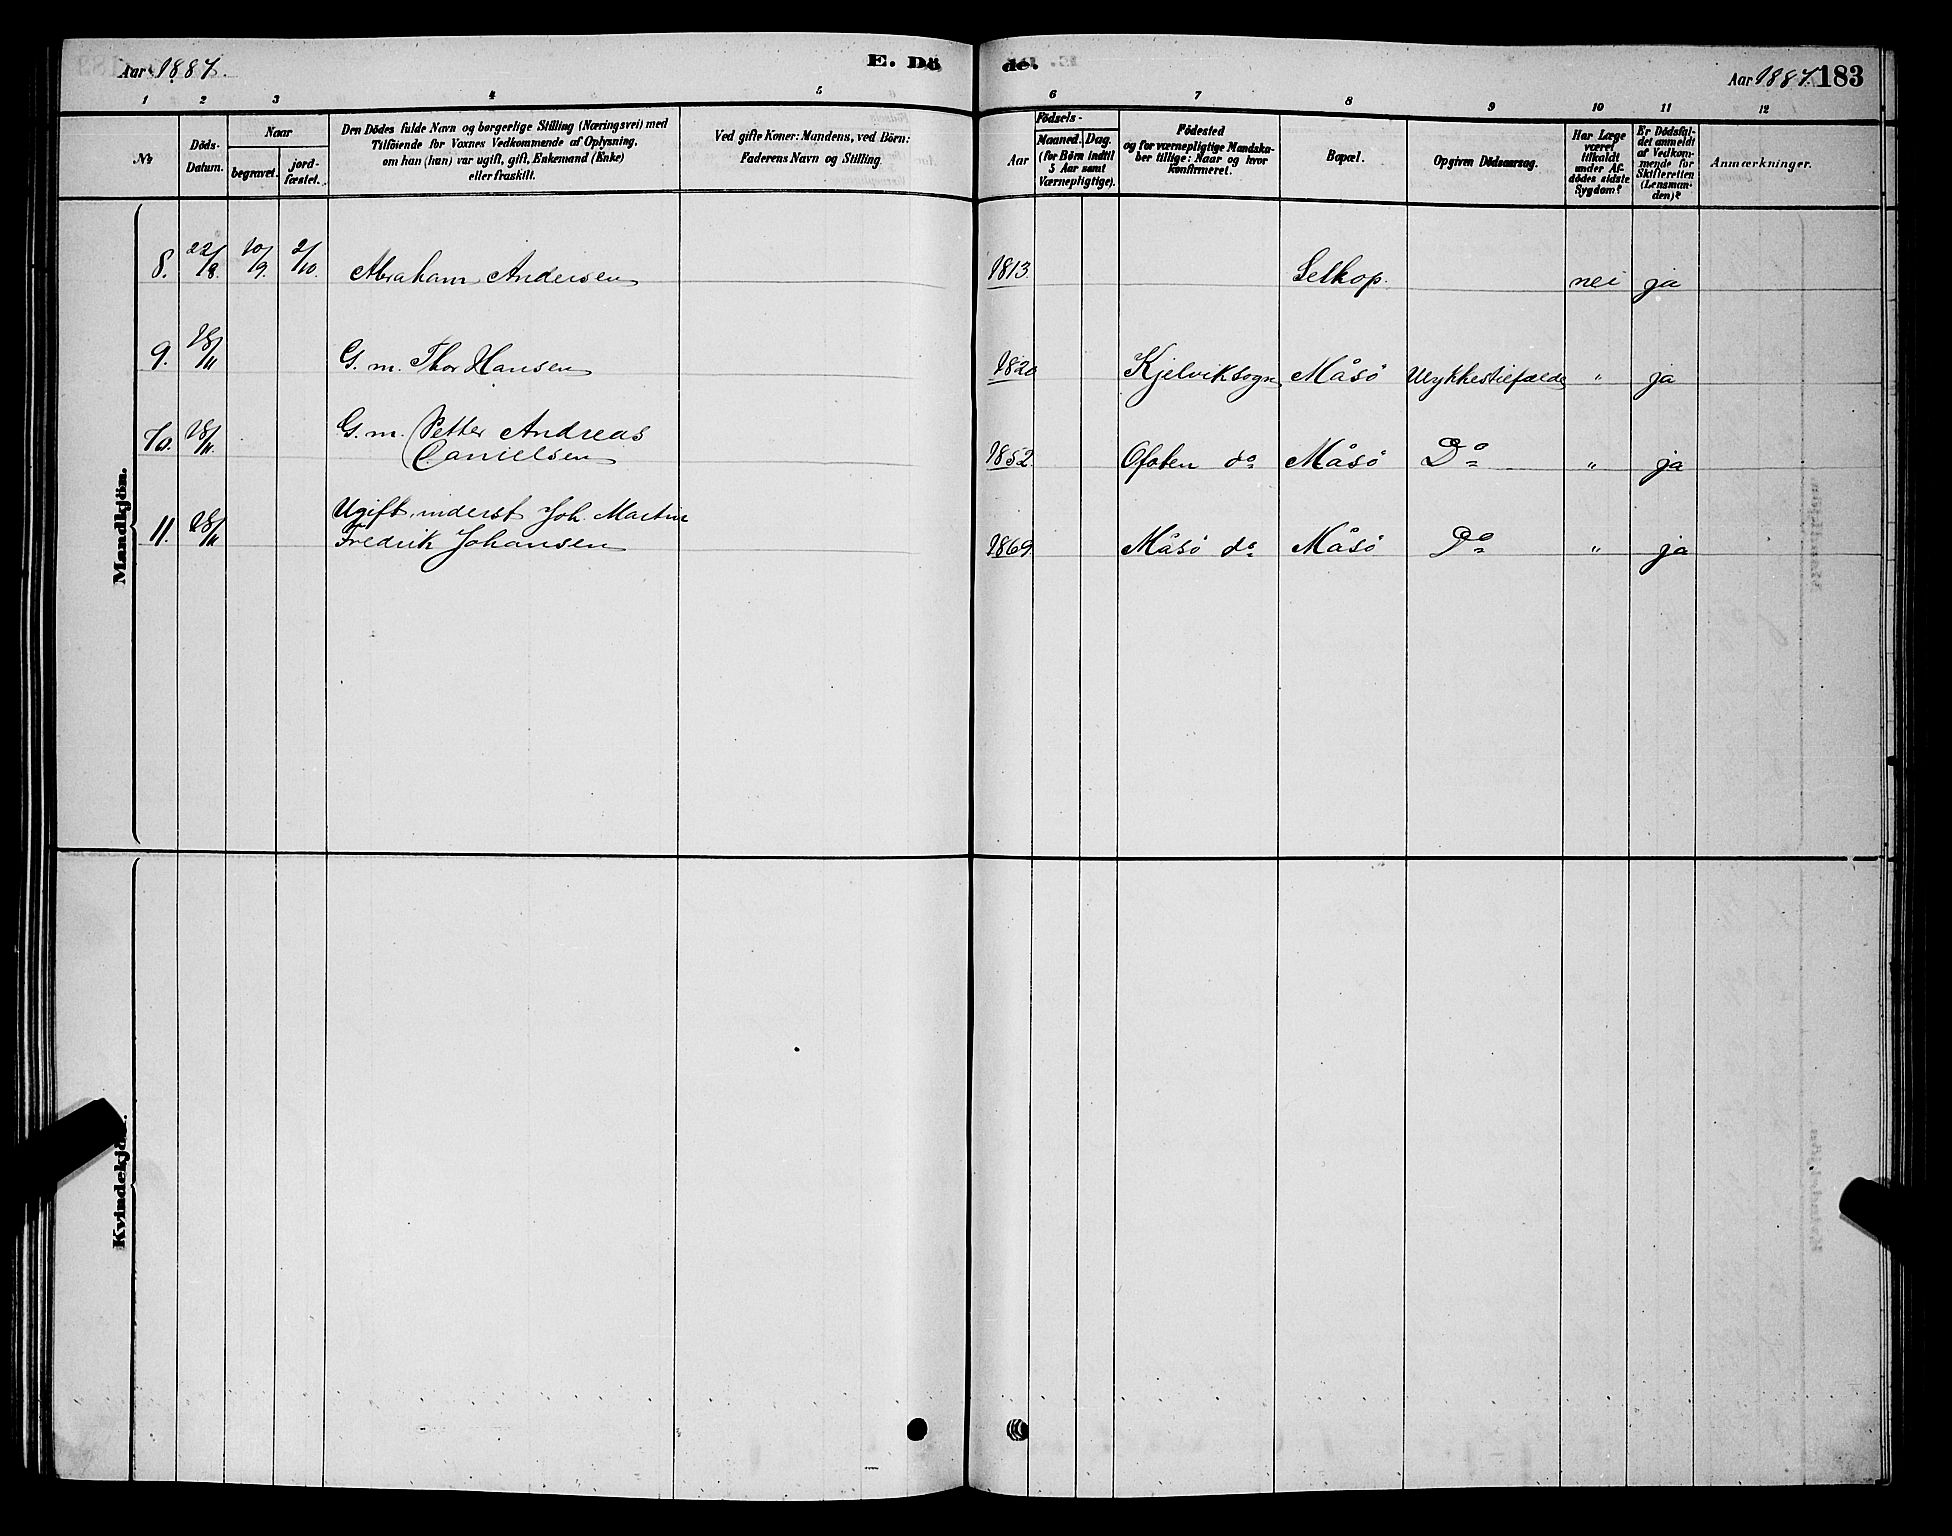 Aar 1887.
E. Dö
de.
Aar 1887. 183
1 2 3 4 5 6 7 8 9 10 11 12
No
Döds-Datum.
Naar
begravet.
jord-fæstet.
Den Dödes fulde Navn og borgerlige Stilling (Næringsvei) med
Tilföiende for Voxnes Vedkommende af Oplysning,
om han (hun) var ugift, gift, Enkemand (Enke)
eller fraskilt.
Ved gifte Koner: Mandens, ved Börn:
Faderens Navn og Stilling.
Födsels-
Aar
Maaned. Dag.
(for Börn indtil
5 Aar samt
Værnepligtige).
Födested
og for værnepligtige Mandska-
ber tillige: Naar og hvor
konfirmeret.
Bopæl.
Opgiven Dödsaarsag.
Har Læge
været
tilkaldt
under Af-
dödes sidste
Sygdom?
Er Dödsfal-
det anmeldt
af Vedkom-
mende for
Skifteretten
(Lensman-
den)?
Anmærkninger.
Mandkjön.
8. 22/8. 10/9. 2/10. Abraham Andersen 1813. Selkop. nei ja
9. 18/11 G. m. Thor Hansen 1820 Kjelviksogn Måsö Ulykkestilfælde " ja
10. 18/11. G. m. Petter Andreas
Danielsen 1852 Ofoten do Måsö Do " ja
11. 18/11 Ugift, inderst Joh. Martin
Fredrik Johansen 1869 Måsö do Måsö Do " ja
Kvindekjön.